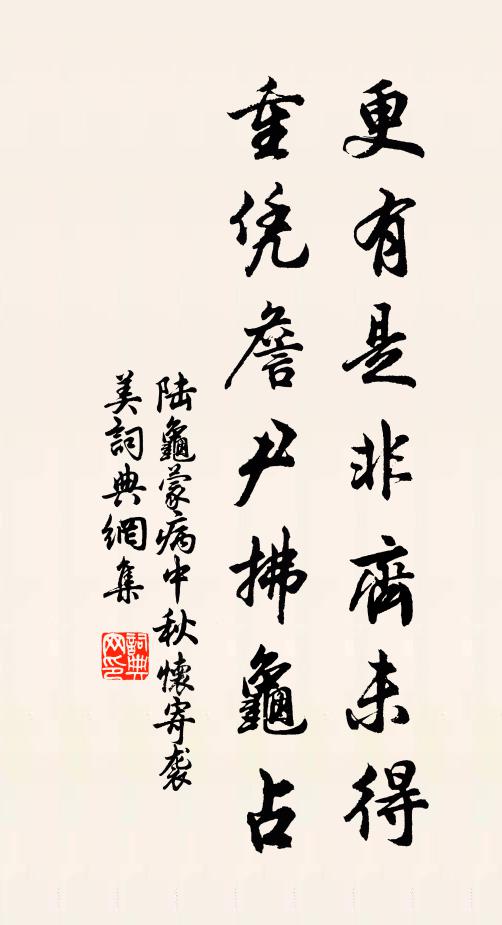 更有是非齊未得
重凭詹尹拂龜占
陸龜蒙病中秋懷寄袭
美詞典網集
詞典网印